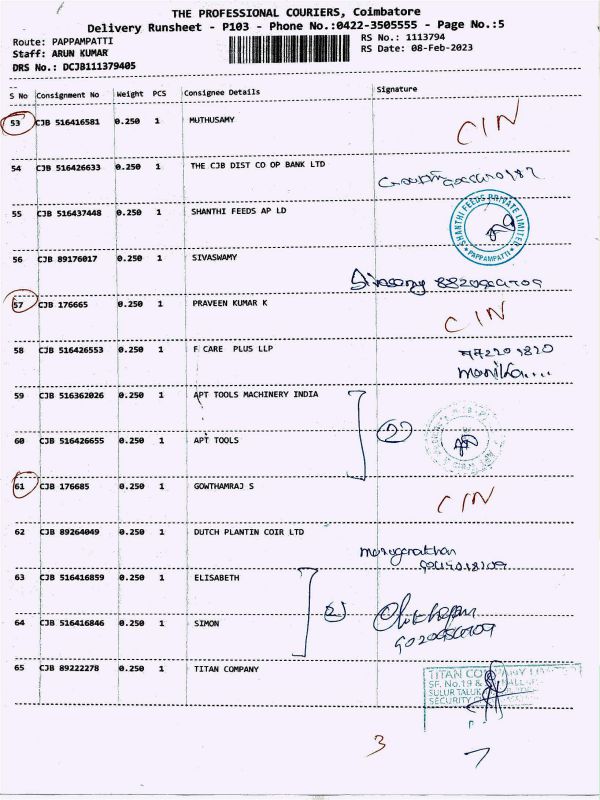 THE PROFESSIONAL COURIERS, Coimbatore
Delivery Runsheet - P103 - Phone No.:0422-3505555 - Page No.:5
Route: PAPPAMPATTI
Staff: ARUN KUMAR
DRS No.: DCJB111379405
RS No.: 1113794
RS Date: 08-Feb-2023
S No Consignment No Weight PCS Consignee Details Signature
53 CJB 516416581 0.250 1 MUTHUSAMY CIN
54 CJB 516426633 0.250 1 THE CJB DIST CO OP BANK LTD
55 CJB 516437448 0.250 1 SHANTHI FEEDS AP LD
SHANTHI FEEDS PRIVATE LIMITED
PAPPAMPATTI
56 CJB 89176017 0.250 1 SIVASWAMY
57 CJB 176665 0.250 1 PRAVEEN KUMAR K CIN
58 CJB 516426553 0.250 1 F CARE PLUS LLP
59 CJB 516362026 0.250 1 APT TOOLS MACHINERY INDIA
2
60 CJB 516426655 0.250 1 APT TOOLS
61 CJB 176685 0.250 1 GOWTHAMRAJ S CIN
62 CJB 89264049 0.250 1 DUTCH PLANTIN COIR LTD
63 CJB 516416859 0.250 1 ELISABETH
2
64 CJB 516416846 0.250 1 SIMON
65 CJB 89222278 0.250 1 TITAN COMPANY
TITAN COMPANY LIMITED
SF. No.19 &
SULUR TALUK
SECURITY
3
7